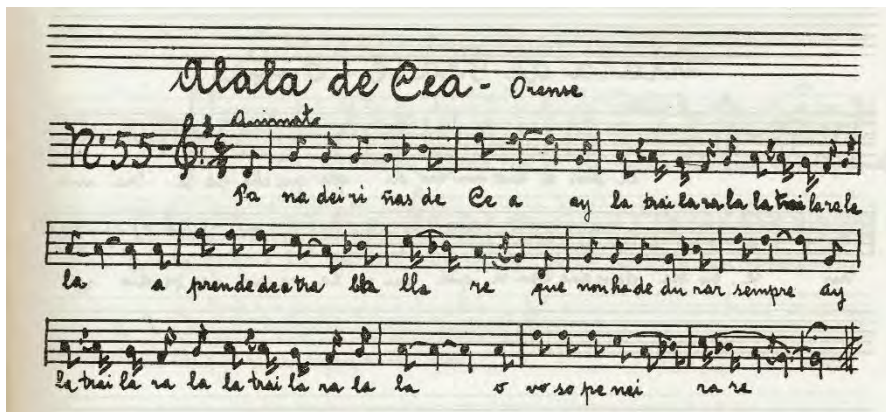 Alala de Cea - Orense
Animato
Nº 55-
Pa na dei ri ñas de Ce a ay la trai la ra la la trai la ra la
la a prende de a tra lla re que non ha de du rar sempre ay
la trai lá ra la la trai lá ra la la o vo so pe nei ra re